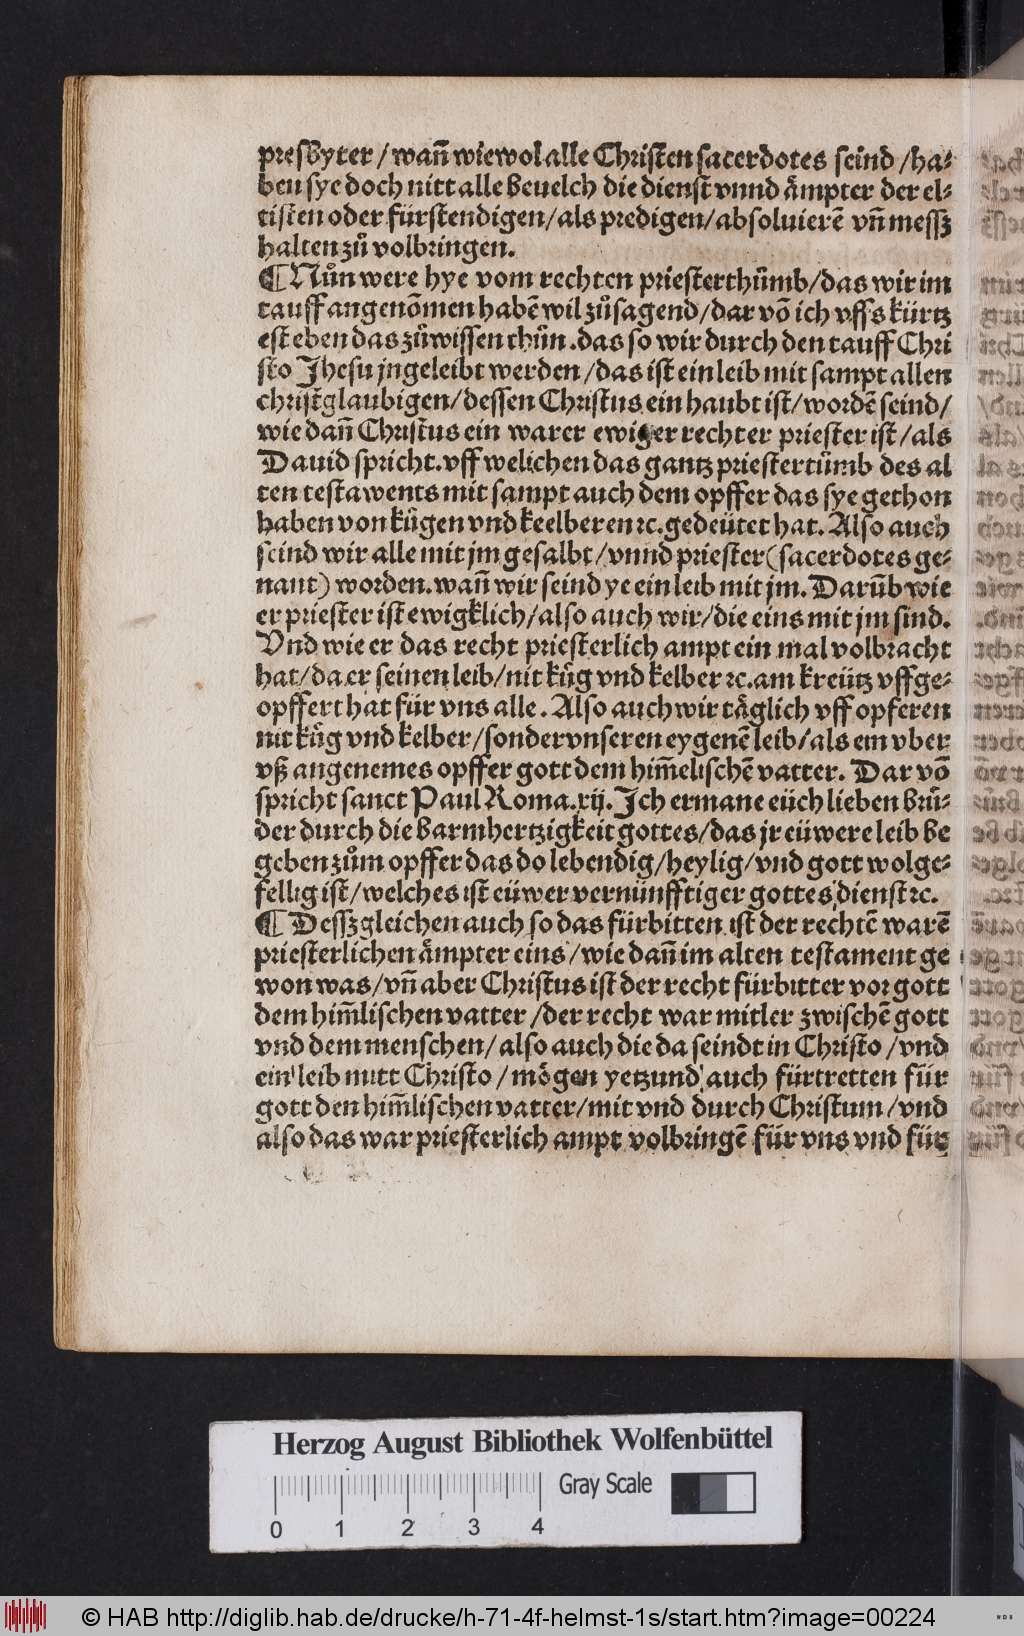 presbyter / wañ wiewol alle Christen sacerdotes seind / ha⸗
ben sye doch nitt alle beuelch die dienst vnnd aͤmpter der el⸗
tisten oder fürstendigen / als predigen / absoluierē vñ messz
halten zuͦ volbringen.
¶ Nuͦn were hye vom rechten priesterthuͦmb / das wir im
tauff angenōmen habē wil zuͦsagend / dar vō ich vffs kürtz
est eben das zuͦwissen thuͦn. das so wir durch den tauff Chri
sto Jhesu jngeleibt werden / das ist ein leib mit sampt allen
christglaubigen / dessen Christus ein haubt ist / wordē seind /
wie dañ Christus ein warer ewiger rechter priester ist / als
Dauid spricht. vff welichen das gantz priestertuͦmb des al
ten testawents mit sampt auch dem opffer das sye gethon
haben von kuͤgen vnd keelberen ꝛc. gedeütet hat. Also auch
seind wir alle mit jm gesalbt / vnnd priester (sacerdotes ge⸗
nant) worden. wañ wir seind ye ein leib mit jm. Darūb wie
er priester ist ewigklich / also auch wir / die eins mit jm sind.
Vnd wie er das recht priesterlich ampt ein mal volbracht
hat / da er seinen leib / nit kuͤg vnd kelber ꝛc. am kreütz vffge⸗
opffert hat für vns alle. Also auch wir taͤglich vff opferen
nit kuͤg vnd kelber / sonder vnseren eygenē leib / als ein vber
vß angenemes opffer gott dem him̄elischē vatter. Dar vō
spricht sanct Paul Roma. xij. Ich ermane eüch lieben bruͤ⸗
der durch die barmhertzigkeit gottes / das jr eüwere leib be
geben zuͦm opffer das do lebendig / heylig / vnd gott wolge⸗
fellig ist / welches ist eüwer vernünfftiger gottes dienst ꝛc.
¶ Dessz gleichen auch so das fürbitten ist der rechtē warē
priesterlichen aͤmpter eins / wie dañ im alten testament ge
won was / vñ aber Christus ist der recht fürbitter vor gott
dem him̄lischen vatter / der recht war mitler zwischē gott
vnd dem menschen / also auch die da seindt in Christo / vnd
ein leib mitt Christo / moͤgen yetzund auch fürtretten für
gott den him̄lischen vatter / mit vnd durch Christum / vnd
also das war priesterlich ampt volbringē für vns vnd für
Herzog August Bibliothek Wolfenbüttel
Gray Scale
0 1 2 3 4
© HAB http://diglib.hab.de/drucke/h-71-4f-helmst-1s/start.htm?image=00224